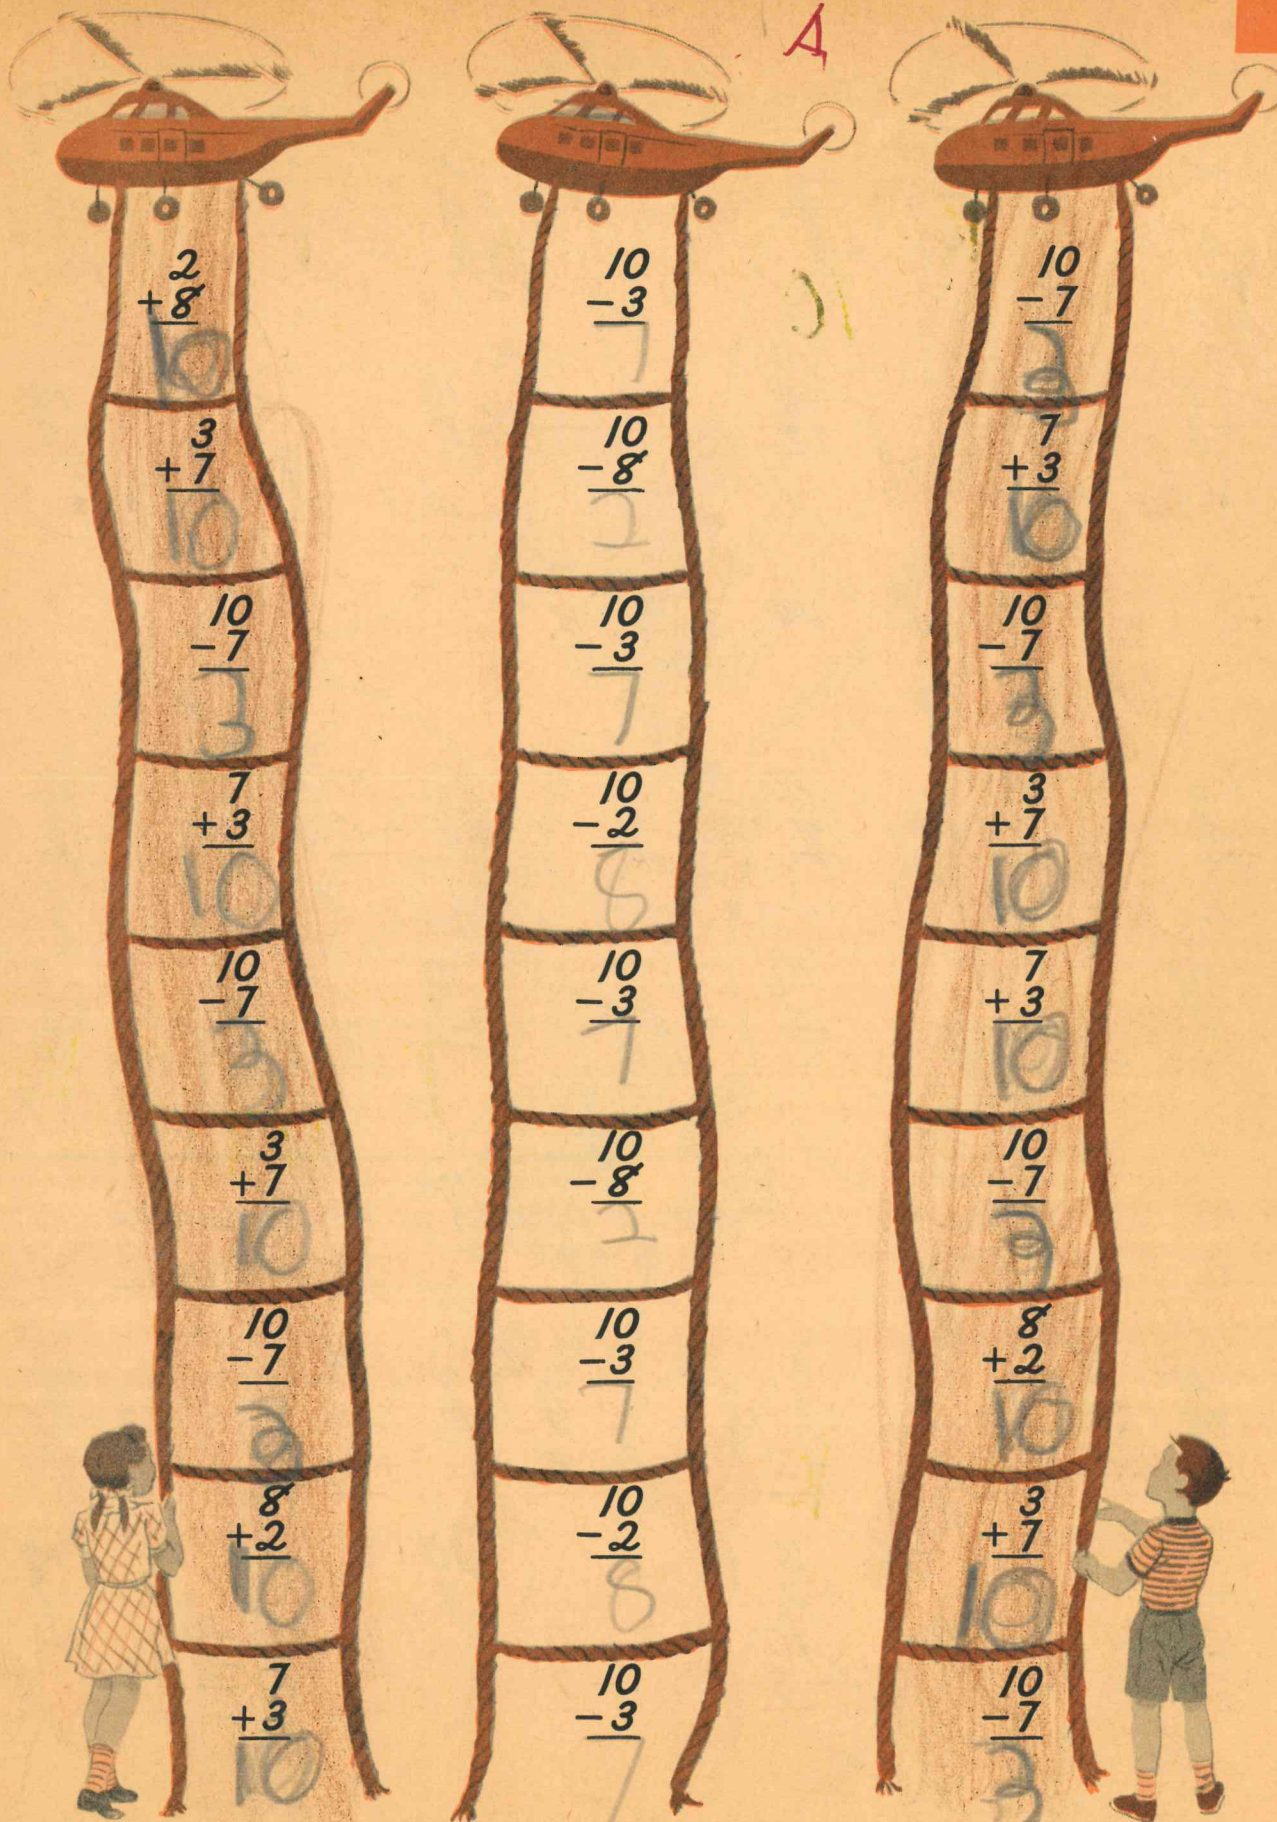 A
2
+8
10
3
+7
10
10
-7
3
7
+3
10
10
-7
3
3
+7
10
10
-7
3
8
+2
10
7
+3
10
10
-3
7
10
-8
2
10
-3
7
10
-2
8
10
-3
7
10
-8
2
10
-3
7
10
-2
8
10
-3
7
10
-7
3
7
+3
10
10
-7
3
3
+7
10
7
+3
10
10
-7
3
8
+2
10
3
+7
10
10
-7
3